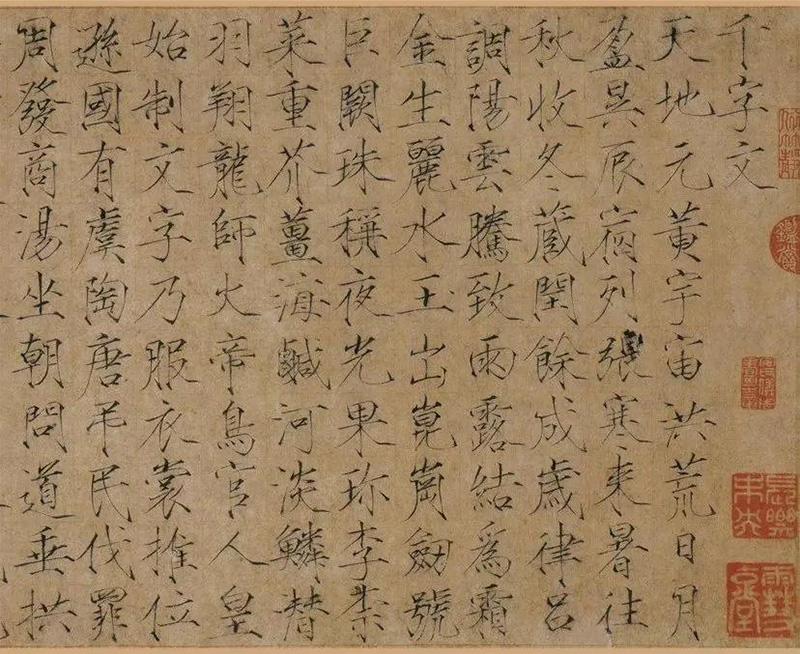 千字文
天地元黃宇宙洪荒日月
盈昃辰宿列張寒来暑往
秋收冬蔵閏餘成歲律呂
調陽雲騰致雨露結為霜
金生麗水玉出崑崗劒號
巨闕珠稱夜光果珎李柰
菜重芥薑海鹹河淡鱗替
羽翔龍師火帝鳥官人皇
始制文字乃服衣裳推位
遜國有虞陶唐弔民伐罪
周發商湯坐朝問道垂拱